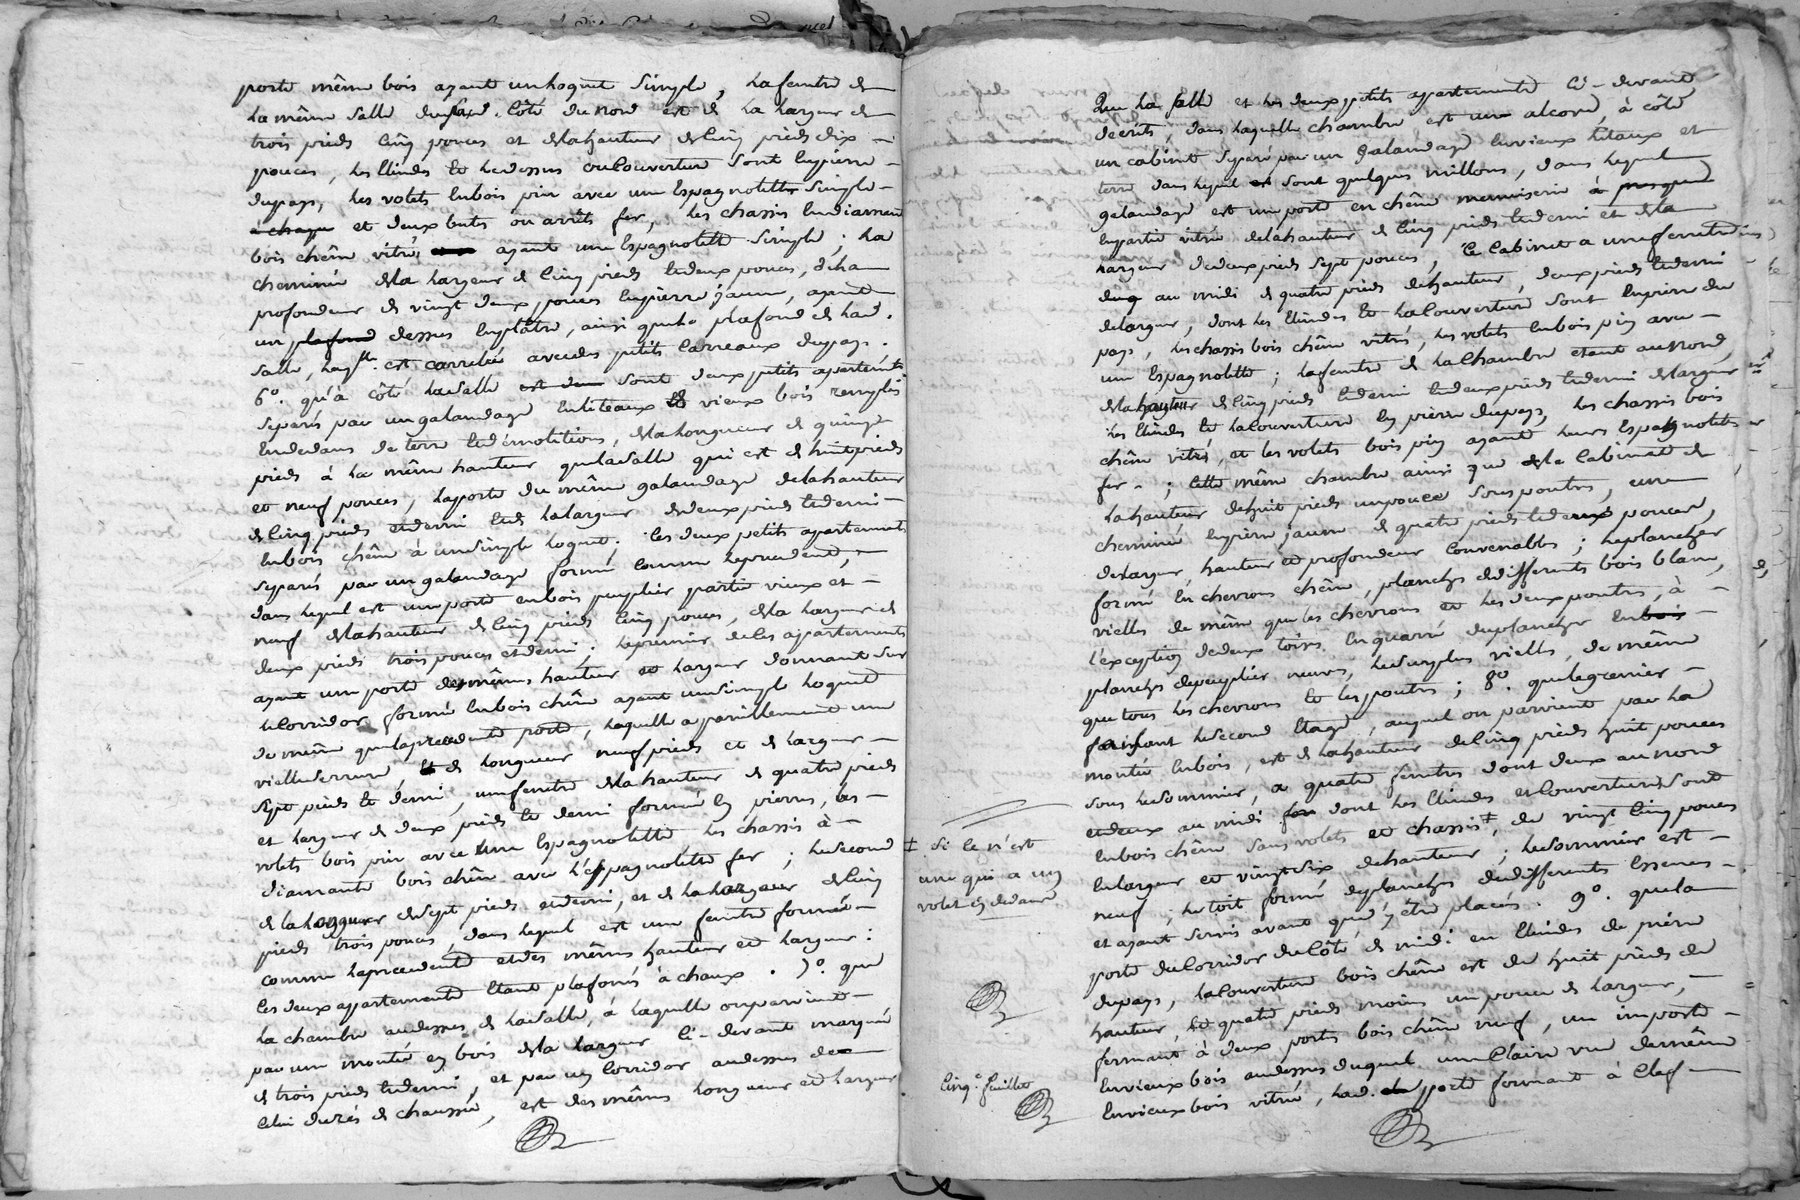 porte même bois ayant un loquet simple, la fenetre de
la même salle du côté du nord est de la largeur de
trois pieds cinq pouces et de la hauteur de cinq pieds dix -
pouces, les llindes et le dessus ou louverture sont en pierre -
du pays, les volets en bois pin avec une espagnolette simple -
a chaque et deux buts ou arrêts fer, les chassis en diamend
bois chêne vitrés ayant une espagnolette simple; la
cheminée de la largeur de cinq pieds et deux pouces, de la
profondeur de vingt deux pouces en pierre jaune, ayant
un plafond dessus en platre, ainsi que le plafond de lad.
salle, laq.lle est carrelée avec des petits carreaux du pays.
6°. qu'à côté la salle est deux sont deux petits apartements
separés par un galandage en liteaux et vieux bois remplis
en dedans de terre et démolitions, de la longueur de quinze
pieds à la même hauteur que la salle qui est de huit pieds
et neuf pouces, la porte du même galandage de la hauteur
de cinq pieds et demi et de la largeur de deux pieds et demi -
en bois chêne à un simple loquet. les deux petits apartements
separés par un galandage formé comme le precedent, -
dans lequel est une porte en bois peuplier partie vieux et -
neuf de la hauteur de cinq pieds cinq pouces, de la largeur de
deux pieds trois pouces et demi; le premier de ces appartements
ayant une porte des mêmes hauteur et largeur donnant sur
le corridor formée en bois chêne ayant un simple loquet
de même que la precedente porte, laquelle a pareillement une
vielle serrure, et de longueur neuf pieds et de largeur -
sept pieds et demi, une fenetre de la hauteur de quatre pieds
et largeur de deux pieds et demi formée en pierres, les -
volets bois pin avec une espagnolette les chassis à -
diamants bois chêne avec l'espagnolette fer; le second
de la longueur de sept pieds et demi, et de la largeur de cinq
pieds trois pouces, dans lequel est une fenetre formée -
comme la precedente et des mêmes hauteur et largeur:
les deux appartements etant plafonés à chaux. 7°. que
la chambre au dessus de la salle, à laquelle on parvient -
par une montée en bois de la largeur ci-devant marquée
de trois pieds et demi, et par un corridor au dessus de
celui du rés de chaussée, est des mêmes longueur et largeur
que la salle et les deux petits appartements ci-devant
decrits, dans laquelle chambre est une alcove, à côté
un cabinet separé par un galandage en vieux litaux et
terre dans lequel sont quelques millons, dans lequel
galandage est une porte en chêne menuiserie à presque
en partie vitrée de la hauteur de cinq pieds et demi et de la
largeur de deux pieds sept pouces, ce cabinet a une fenetre
au midi de quatre pieds de hauteur, deux pieds et demi
de largeur, dont les llindes et la louverture sont en pierre du
pays, les chassis bois chêne vitrés, les volets en bois pin avec -
une espagnolette; la fenetre de la chambre etant au nord,
de la hauteur de cinq pieds et demi et deux pieds et demi de largeur
les llindes et la louverture en pierre du pays, les chassis bois
chêne vitrés, et les volets bois pin ayant leurs espagnolettes
fer -; cette même chambre ainsi que le cabinet de
la hauteur de huit pieds un pouce sous poutre, une
cheminée en pierre jaune de quatre pieds et deux pouces,
de largeur, hauteur et profondeur convenables; le plancher
formé en chevrons chêne, planches de differents bois blanc,
vielles de même que les chevrons et les deux poutres, à -
l'exception de deux toises en quarré du plancher en bois -
planches de peuplier neuves, le surplus vielle, de même
que tous les chevrons et les poutres; 8°. que le grenier -
faisant le second etage, auquel on parvient par la
montée en bois, est de la hauteur de cinq pieds huit pouces
sous le sommier, a quatre fenetres dont deux au nord
et deux au midi dont les llindes et louvertures sont
en bois chêne sans volets et chassis ‡, de vingt cinq pouces
en largeur et vingt six de hauteur; le sommier est -
neuf, le toit formé de planches de differents essences -
et ayant servis avant que d'y être placés. 9°. que la
porte du corridor du côté de midi en llindes de pierre
du pays, la louverture bois chêne est de huit pieds de
hauteur, et quatre pieds moins un pouce de largeur, -
fermant à deux portes bois chêne neuf, un imposte -
en vieux bois au dessus duquel un claire vue de même
en vieux bois vitrée, lad. porte fermant à clef -
‡ si ce n'est
une qui a un
volet en dedans
cinq.e feuillet